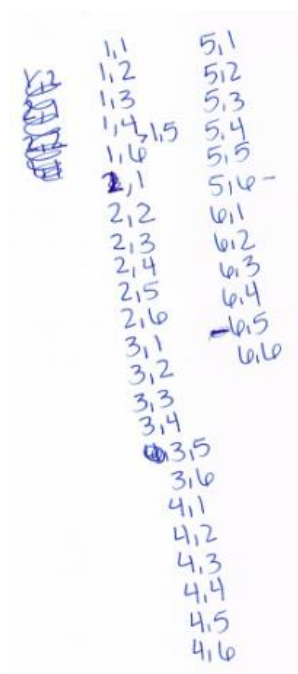 1,1
1,2
1,3
1,4
1,5
1,6
2,1
2,2
2,3
2,4
2,5
2,6
3,1
3,2
3,3
3,4
3,5
3,6
4,1
4,2
4,3
4,4
4,5
4,6
5,1
5,2
5,3
5,4
5,5
5,6 -
6,1
6,2
6,3
6,4
-6,5
6,6